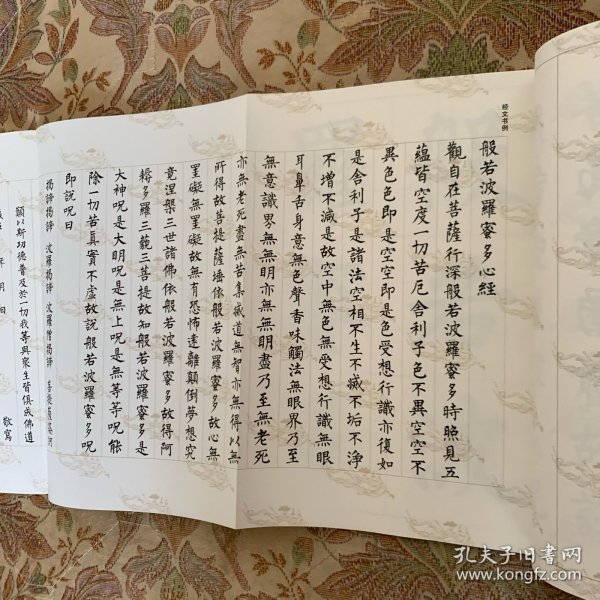 经文书例
般若波羅蜜多心經
觀自在菩薩行深般若波羅蜜多時照見五
蘊皆空度一切苦厄舍利子色不異空空不
異色色即是空空即是色受想行識亦復如
是舍利子是諸法空相不生不滅不垢不淨
不增不減是故空中無色無受想行識無眼
耳鼻舌身意無色聲香味觸法無眼界乃至
無意識界無無明亦無無明盡乃至無老死
亦無老死盡無苦集滅道無智亦無得以無
所得故菩提薩埵依般若波羅蜜多故心無
罣礙無罣礙故無有恐怖遠離顛倒夢想究
竟涅槃三世諸佛依般若波羅蜜多故得阿
耨多羅三藐三菩提故知般若波羅蜜多是
大神呪是大明呪是無上呪是無等等呪能
除一切苦真實不虛故說般若波羅蜜多呪
即說呪曰
揭諦揭諦 波羅揭諦 波羅僧揭諦 菩提薩婆訶
願以斯功德普及於一切我等與眾生皆俱成佛道
年 月 日
敬寫
孔夫子旧书网
www.kongfz.com